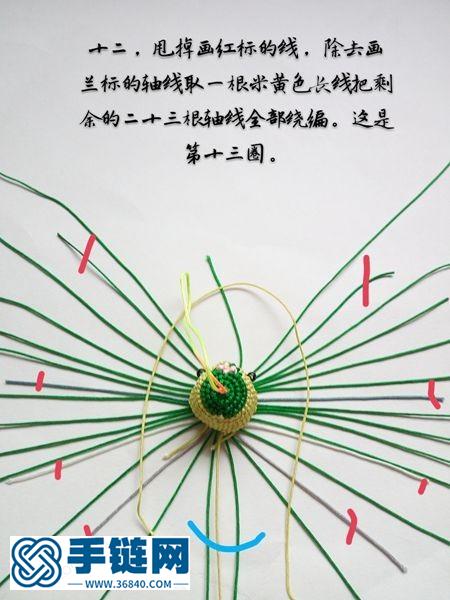 十二，甩掉画红标的线，除去画
兰标的轴线取一根米黄色长线把剩
余的二十三根轴线全部绕编。这是
第十三圈。
手链网
WWW.36840.COM